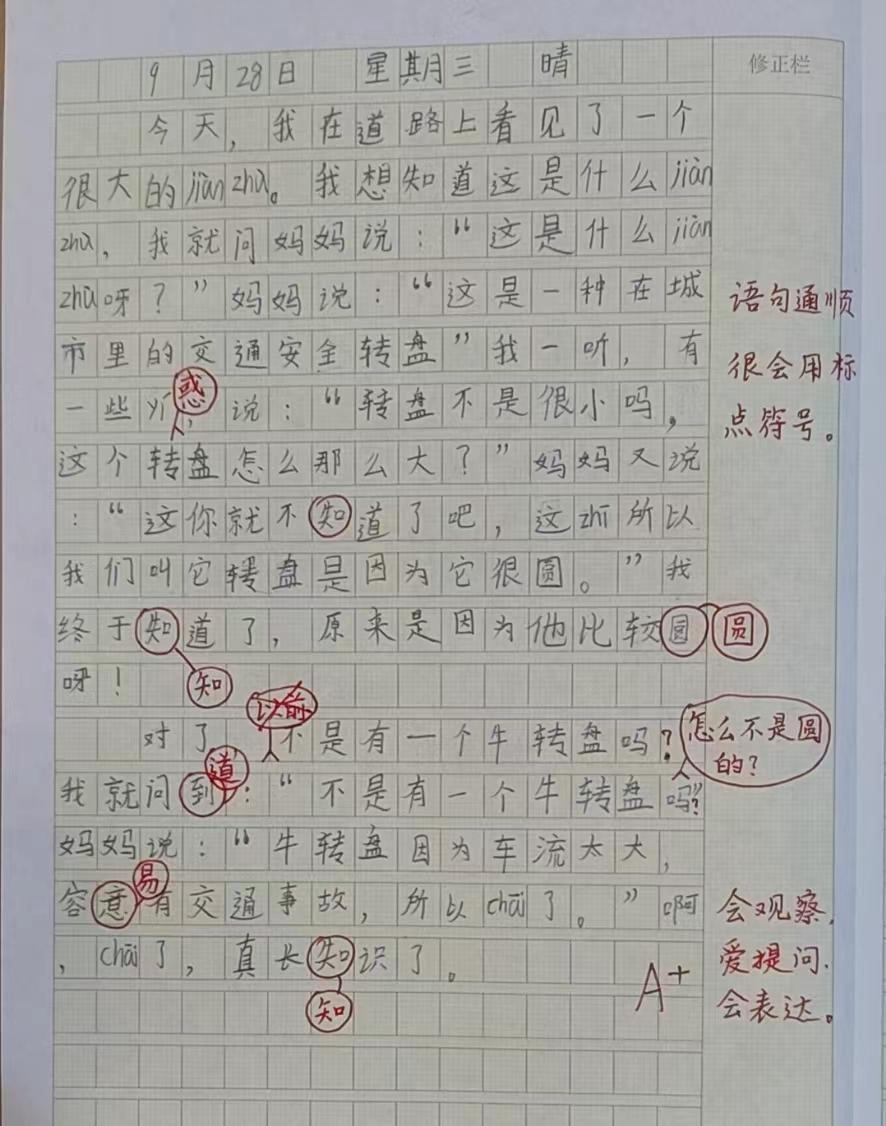 9月28日 星期三 晴
修正栏
今天，我在道路上看见了一个
很大的jiànzhù。我想知道这是什么jiàn
zhù，我就问妈妈说：“这是什么jiàn
zhù呀？”妈妈说：“这是一种在城
市里的交通安全转盘”我一听，有
惑
一些，说：“转盘不是很小吗，
这个转盘怎么那么大？”妈妈又说
：“这你就不知道了吧，这zhī所以
我们叫它转盘是因为它很圆。”我
终于知道了，原来是因为他比较圆
圆
呀！
知
以前
对了，不是有一个牛转盘吗？
怎么不是圆
的？
道
我就问到：“不是有一个牛转盘吗？”
妈妈说：“牛转盘因为车流太大，
易
容意有交通事故，所以chāi了。”啊
，chāi了，真长知识了。
知
语句通顺
很会用标
点符号。
会观察，
爱提问.
会表达。
A+